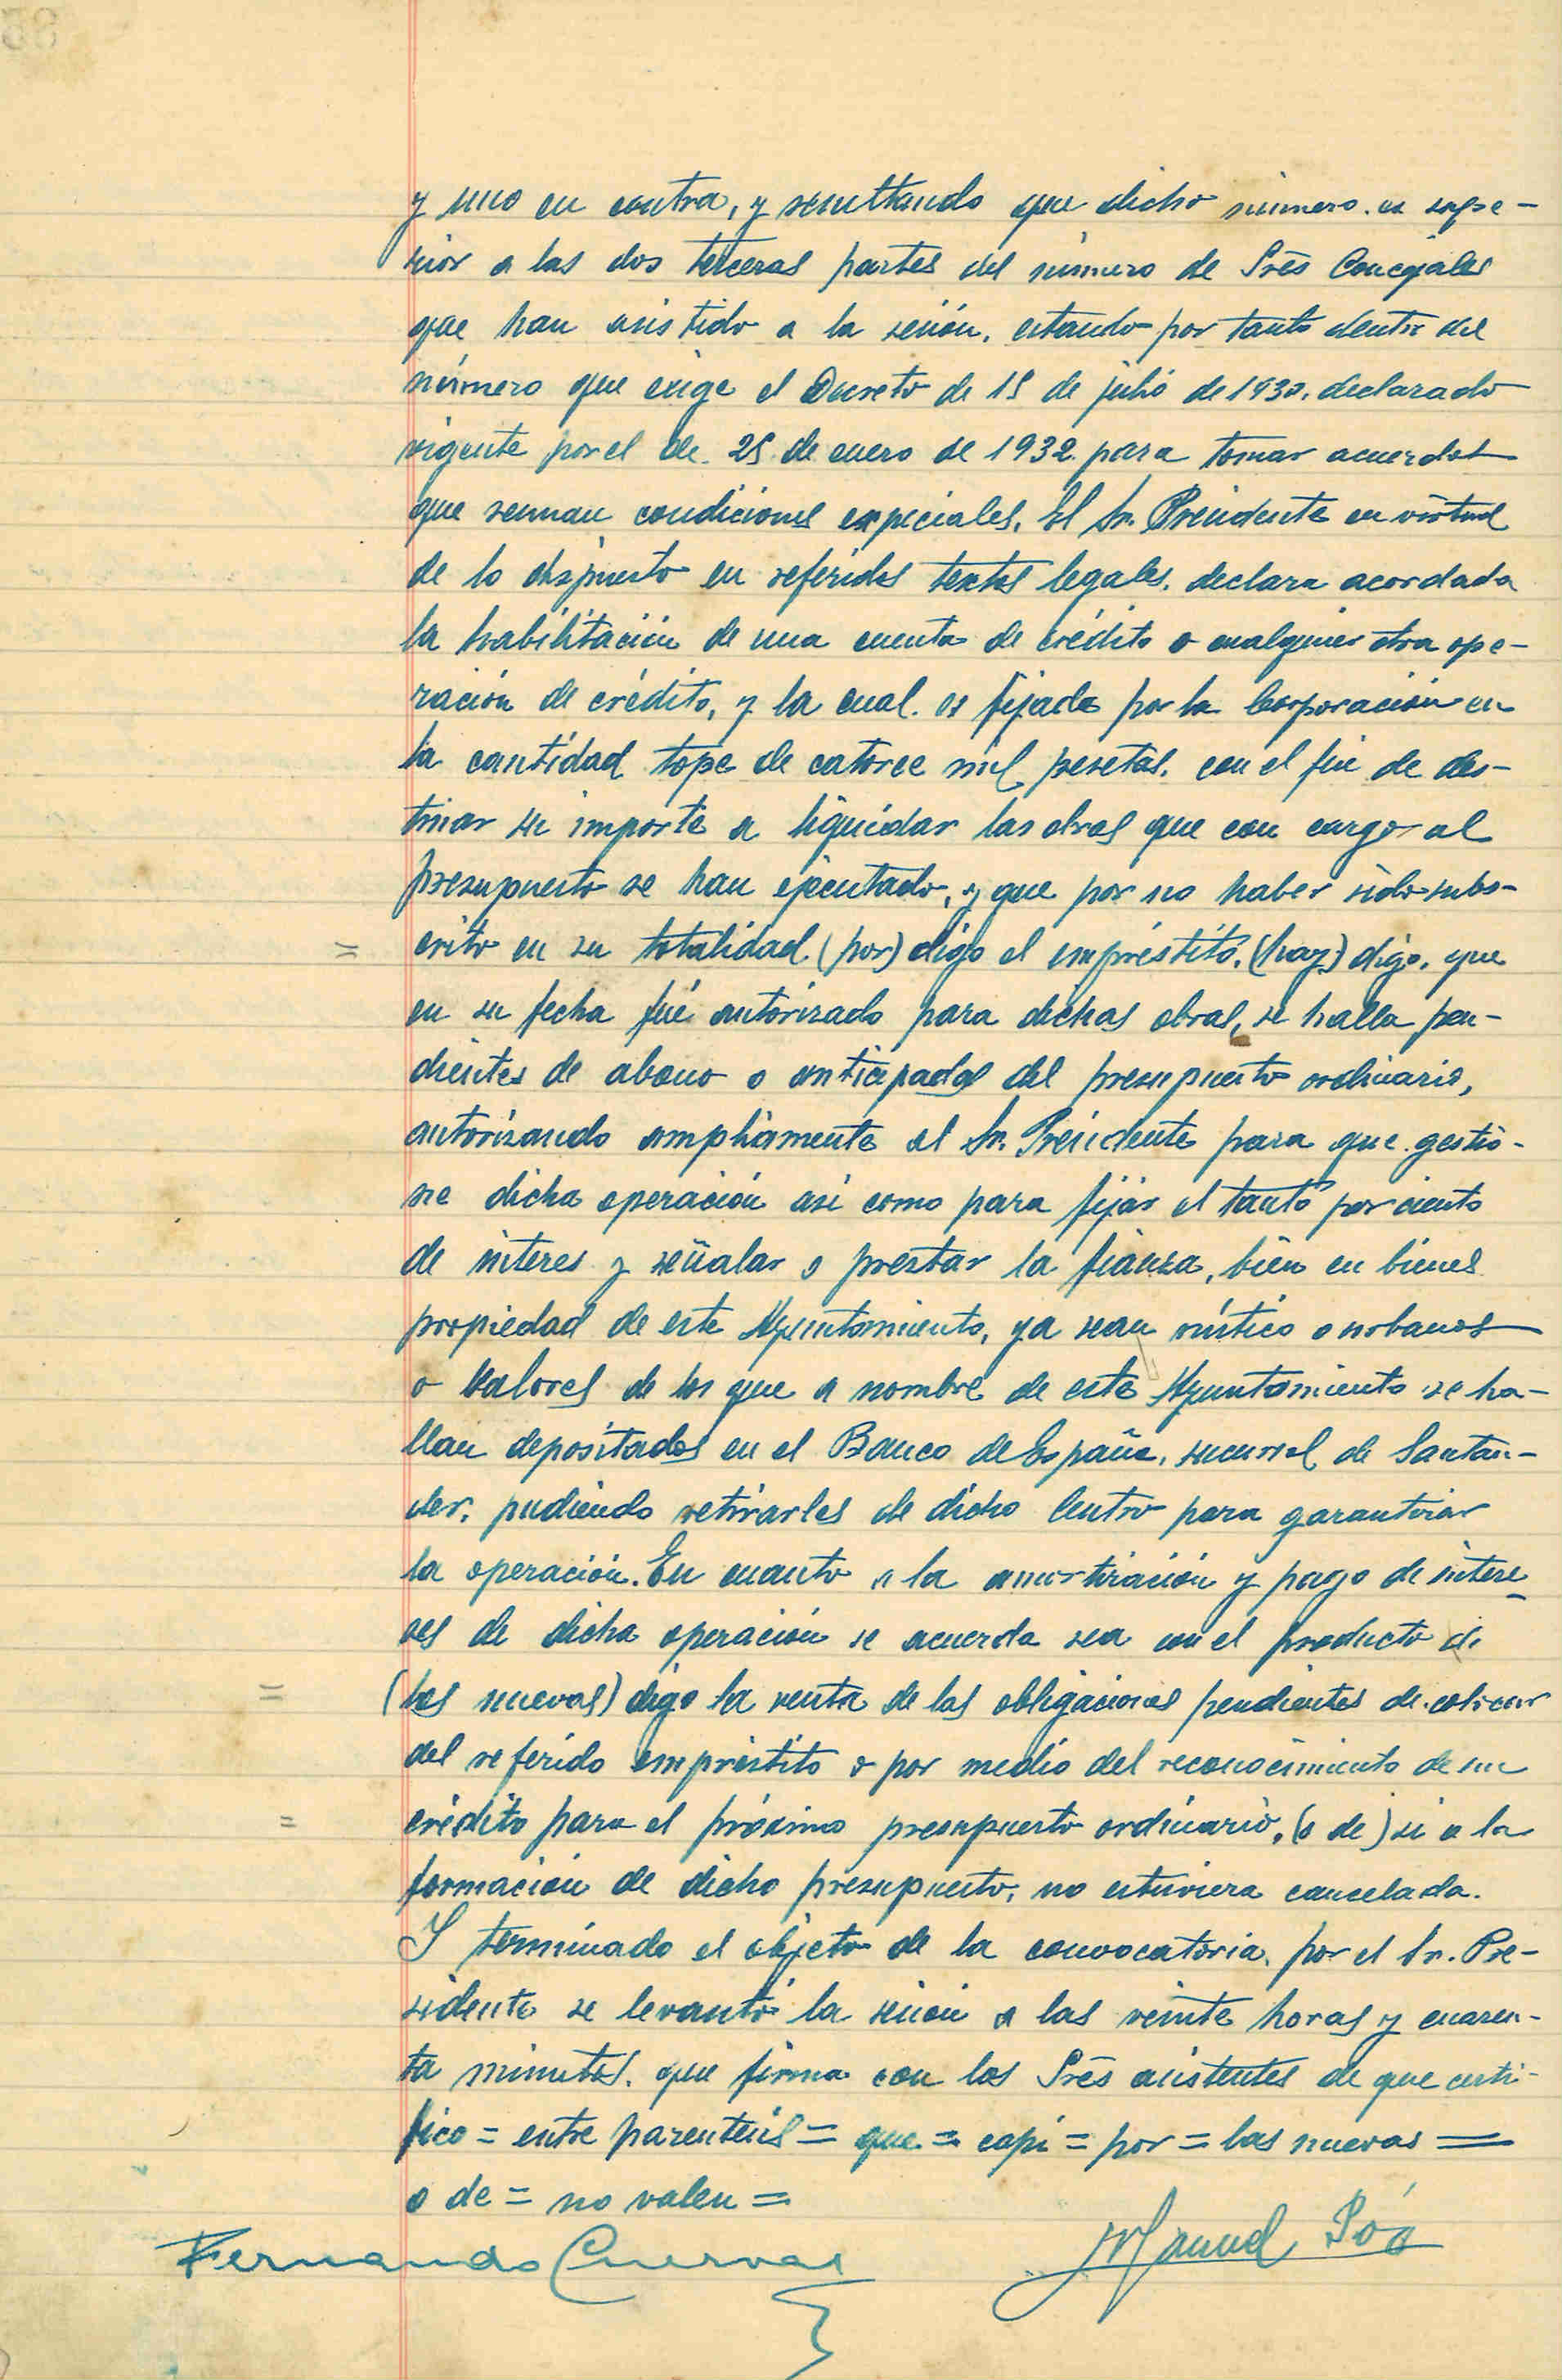 y uno en contra, y resultando que dicho número es supe-
rior a las dos terceras partes del número de Srēs Concejales
que han asistido a la sesión, estando por tanto dentro del
número que exige el Decreto de 15 de julio de 1930, declarado
vigente por el de 25 de enero de 1932 para tomar acuerdos
que reunan condiciones especiales. El Sr. Presidente en virtud
de lo dispuesto en referidos textos legales, declara acordada
la habilitación de una cuenta de crédito o cualquier otra ope-
ración de crédito, y la cual es fijada por la Corporación en
la cantidad tope de catorce mil pesetas, con el fin de des-
tinar su importe a liquidar las obras que con cargo al
presupuesto se han ejecutado, y que por no haber sido subs-
= crito en su totalidad (por) digo el empréstito, (hay) digo, que
en su fecha fué autorizado para dichas obras, se halla pen-
dientes de abono o anticipadas del presupuesto ordinario,
autorizando ampliamente al Sr. Presidente para que gestio-
ne dicha operación asi como para fijar el tanto por ciento
de interes y señalar o prestar la fianza, bien en bienes
propiedad de este Ayuntamiento, ya sean rústico o urbanos
o Valores de los que a nombre de este Ayuntamiento se ha-
llan depositados en el Banco de España, sucursal de Santan-
der, pudiendo retirarles de dicho Centro para garantizar
la operación. En cuanto a la amortización y pago de intere-
ses de dicha operación se acuerda sea con el producto de
= (las nuevas) digo la venta de las obligaciones pendientes de colocar
del referido empréstito o por medio del reconocimiento de un
= crédito para el próximo presupuesto ordinario, (o de) si a la
formación de dicho presupuesto, no estuviera cancelada.
Y terminado el objeto de la convocatoria, por el Sr. Pre-
sidente se levantó la sesión a las veinte horas y cuaren-
ta minutos, que firma con los Srēs asistentes de que certi-
fico = entre parentesis = que = copi = por = las nuevas =
o de = no valen =
Fernando Cuevas
Manuel Póo